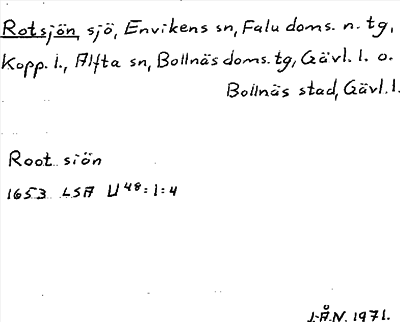 Rotsjön, sjö, Envikens sn, Falu doms. n. tg,
Kopp. l., Alfta sn, Bollnäs doms. tg, Gävl. l. o.
Bollnäs stad, Gävl. l.
Root siön
1653 LSA U48:1:4
J.Å.N. 1971.